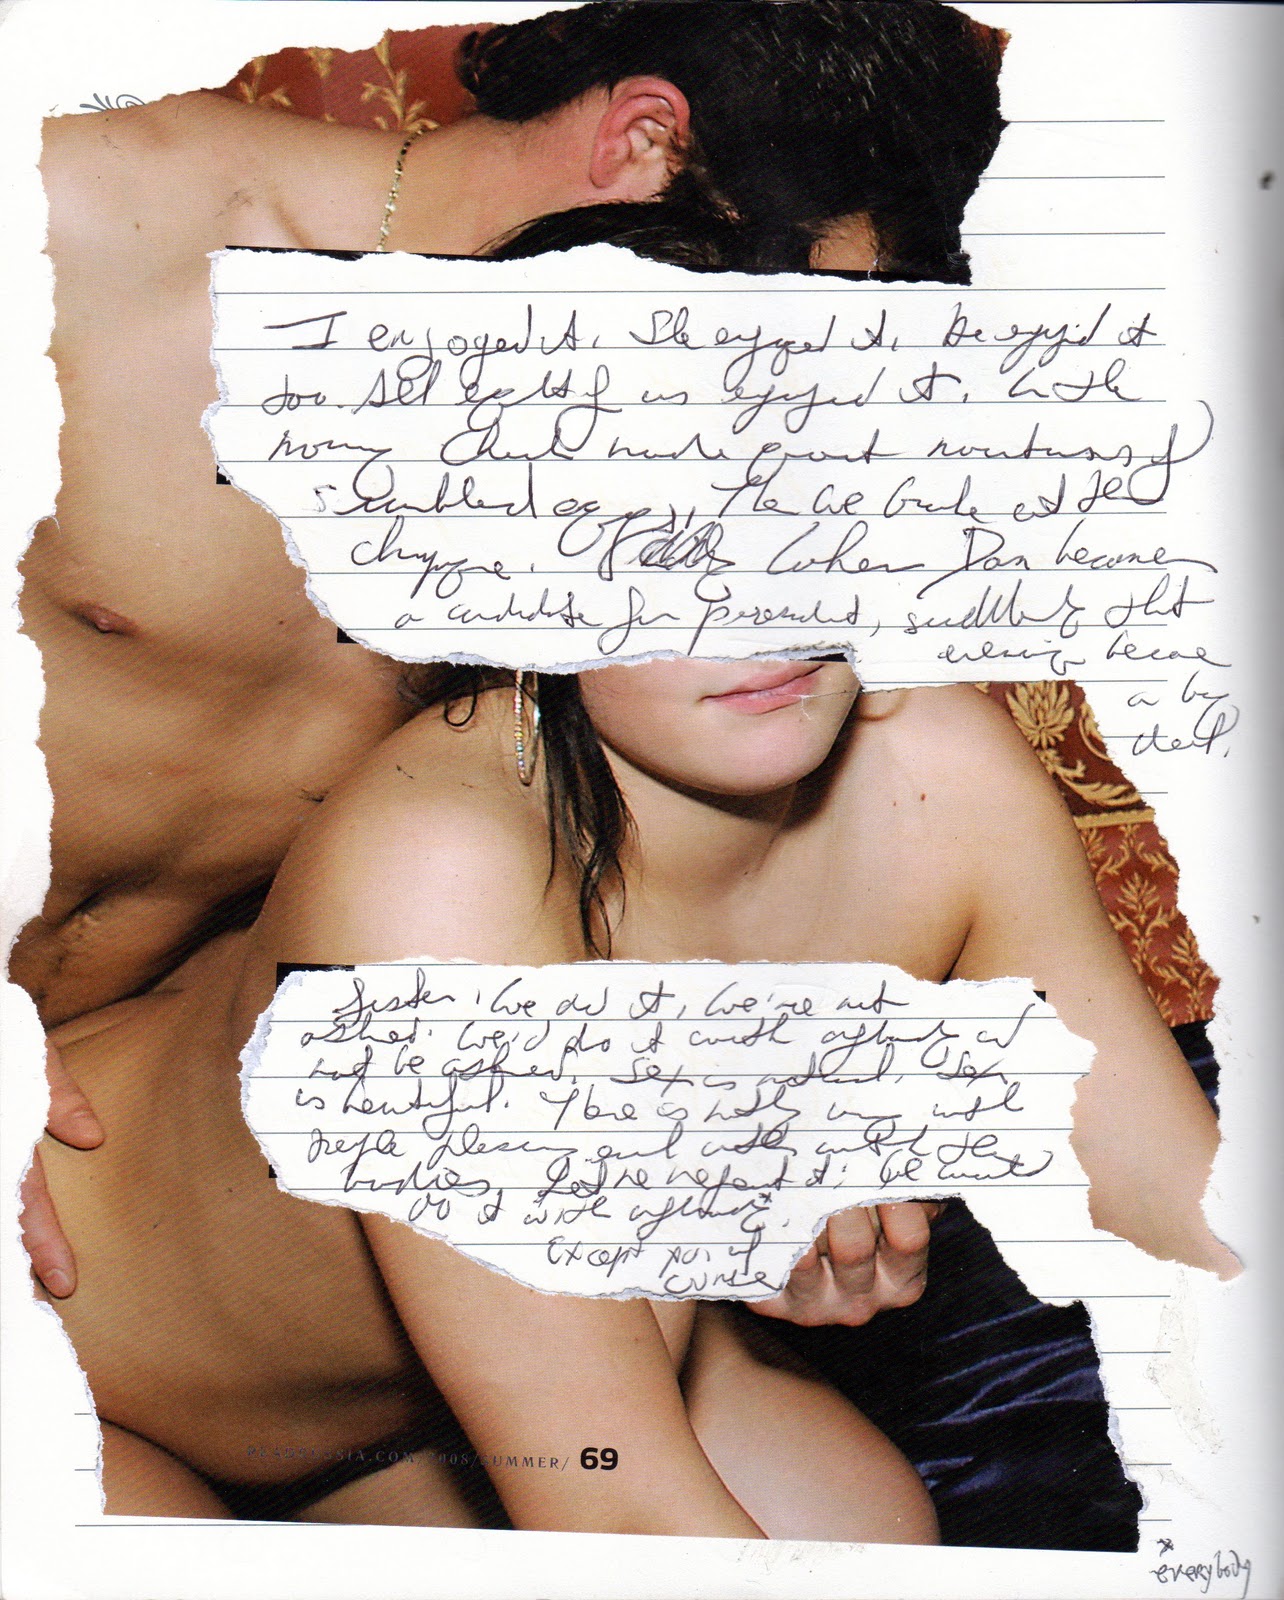 I enjoyed it. She enjoyed it. He enjoyed it
too. All of us enjoyed it. In the
morning made mountains of
scrambled eggs. Then we broke out the
champagne. When Dan became
a candidate for president, suddenly that
evening became
a big
deal.
Listen, we did it, we're not
ashamed. We'd do it with anybody and
not be ashamed. Sex is natural. Sex
is beautiful. There is nothing wrong with
people pleasure with the
bodies. Let me repeat it: We would
do it with anybody*.
Except you of
course
READRUSSIA.COM/2008/SUMMER/ 69
* everybody